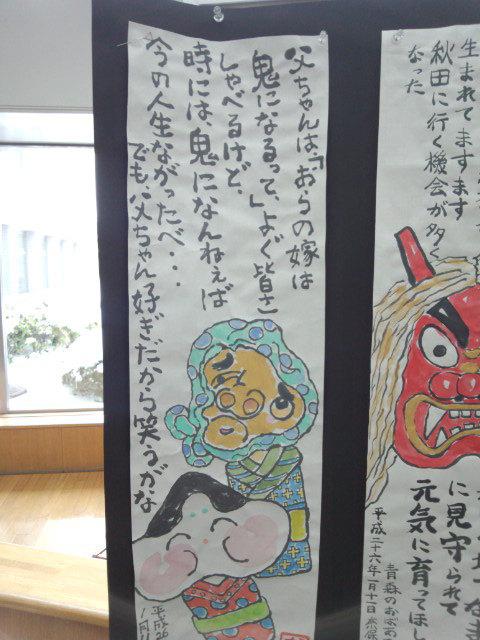 父ちゃんは、「おらの嫁は
鬼になるって、」よぐ皆さ
しゃべるけど、
時には、鬼になんねぇば
今の人生ながったべ・・・
でも、父ちゃん好ぎだから笑うがな
平成26
1月11
生まれてますます
秋田に行く機会が多く
なった
に見守られて
元気に育ってほし
平成二十六年一月十一日
青森のおばあ